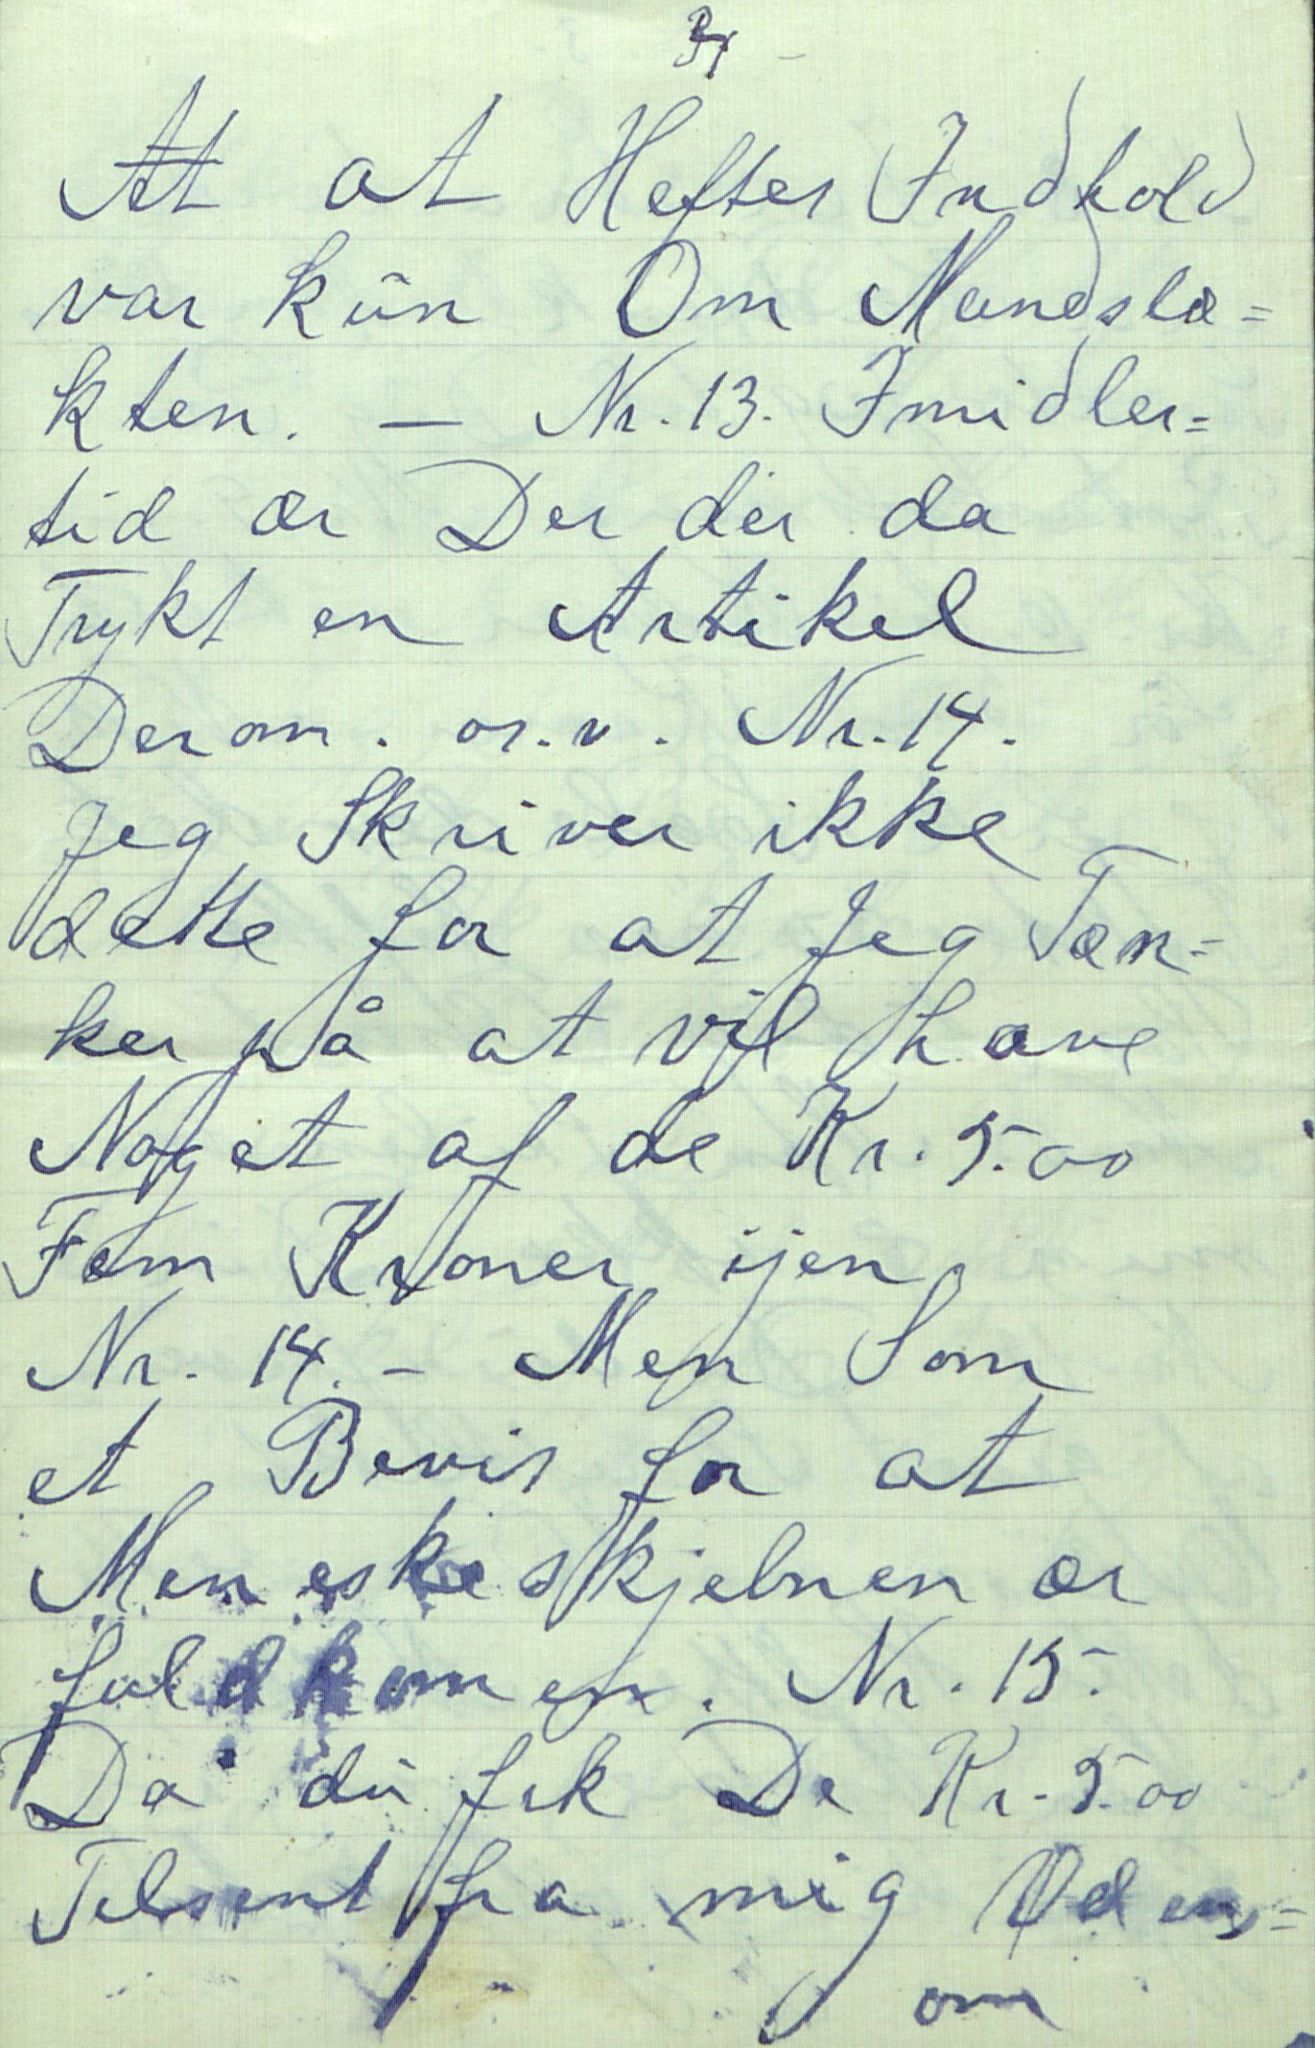 At at Hefter Indhold
var kūn Om Mandslæ=
kten. — Nr. 13. Imidler=
tid ær Der der da
Trykt en Artikel
Derom. os.v. Nr. 14.
Jeg Skriver ikke
dette for at Jeg Tæn=
ker på at vil have
Noget af de Kr. 5.00
Fem Kroner ijen
Nr. 14. – Men Som
et Bevis for at
Menneskeskjebnen ær
fuldkomen. Nr. 15.
Da dū fik De Kr. 5.00
Telsent fra mig
om